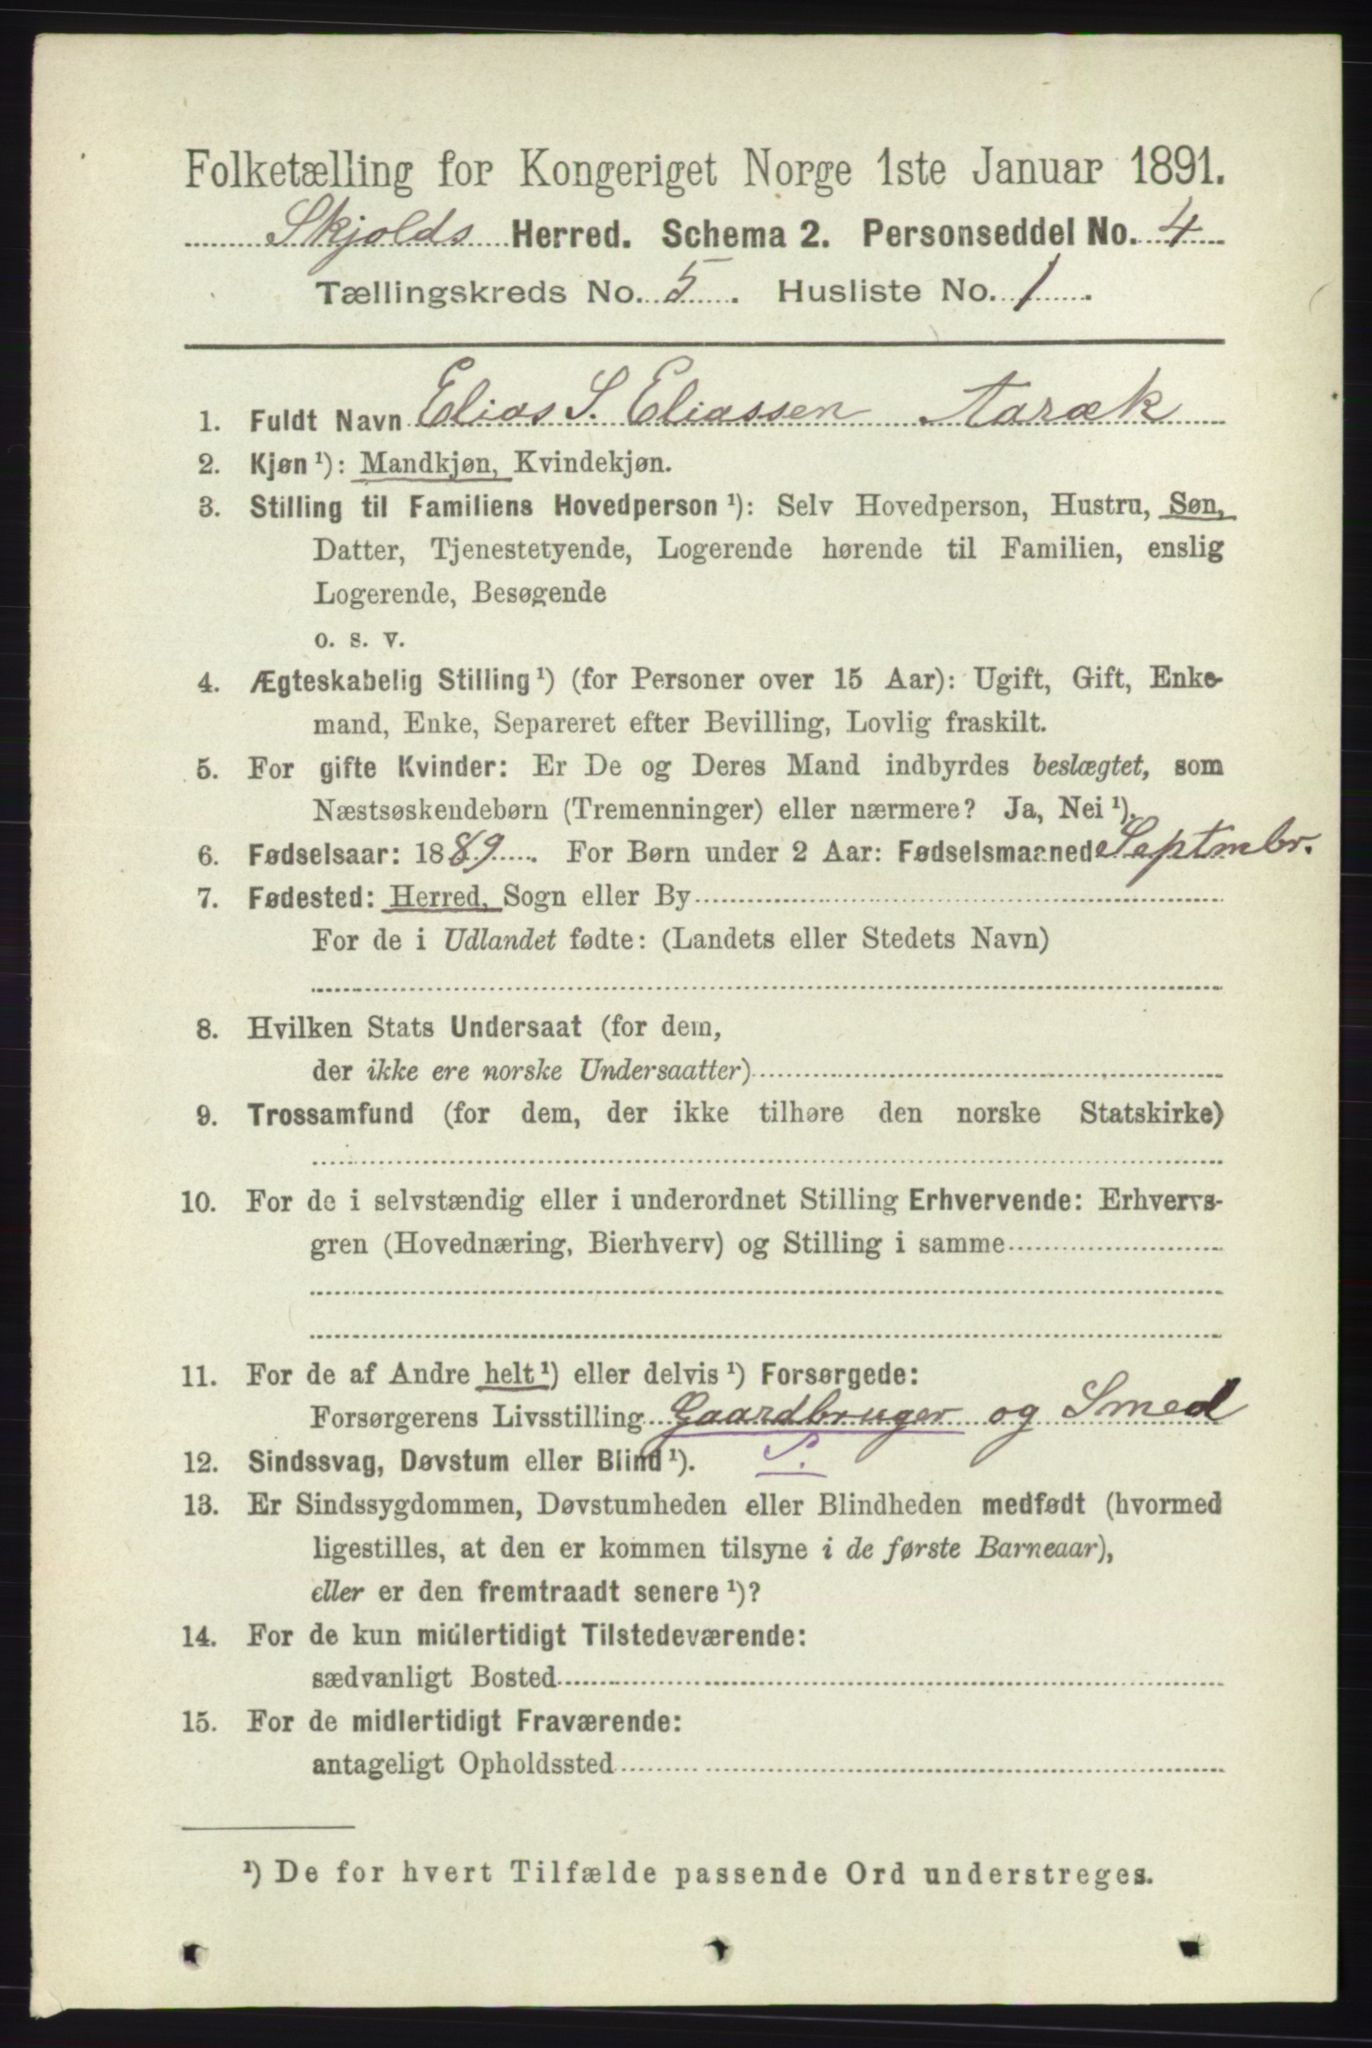 Folketælling for Kongeriget Norge 1ste Januar 1891.
Skjolds Herred. Schema 2. Personseddel No. 4
Tællingskreds No. 5. Husliste No. 1.
1. Fuldt Navn Elias S. Eliassen Aaræk
2. Kjøn ¹): Mandkjøn, Kvindekjøn.
3. Stilling til Familiens Hovedperson ¹): Selv Hovedperson, Hustru, Søn,
Datter, Tjenestetyende, Logerende hørende til Familien, enslig
Logerende, Besøgende
o. s. v.
4. Ægteskabelig Stilling ¹) (for Personer over 15 Aar): Ugift, Gift, Enke-
mand, Enke, Separeret efter Bevilling, Lovlig fraskilt.
5. For gifte Kvinder: Er De og Deres Mand indbyrdes beslægtet, som
Næstsøskendebørn (Tremenninger) eller nærmere? Ja, Nei ¹).
6. Fødselsaar: 1889. For Børn under 2 Aar: Fødselsmaaned Septmbr.
7. Fødested: Herred, Sogn eller By
For de i Udlandet fødte: (Landets eller Stedets Navn)
8. Hvilken Stats Undersaat (for dem,
der ikke ere norske Undersaatter)
9. Trossamfund (for dem, der ikke tilhøre den norske Statskirke)
10. For de i selvstændig eller i underordnet Stilling Erhvervende: Erhvervs-
gren (Hovednæring, Bierhverv) og Stilling i samme
11. For de af Andre helt ¹) eller delvis ¹) Forsørgede:
Forsørgerens Livsstilling Gaardbruger og Smed
12. Sindssvag, Døvstum eller Blind ¹). S.
13. Er Sindssygdommen, Døvstumheden eller Blindheden medfødt (hvormed
ligestilles, at den er kommen tilsyne i de første Barneaar),
eller er den fremtraadt senere ¹)?
14. For de kun midlertidigt Tilstedeværende:
sædvanligt Bosted
15. For de midlertidigt Fraværende:
antageligt Opholdssted
¹) De for hvert Tilfælde passende Ord understreges.